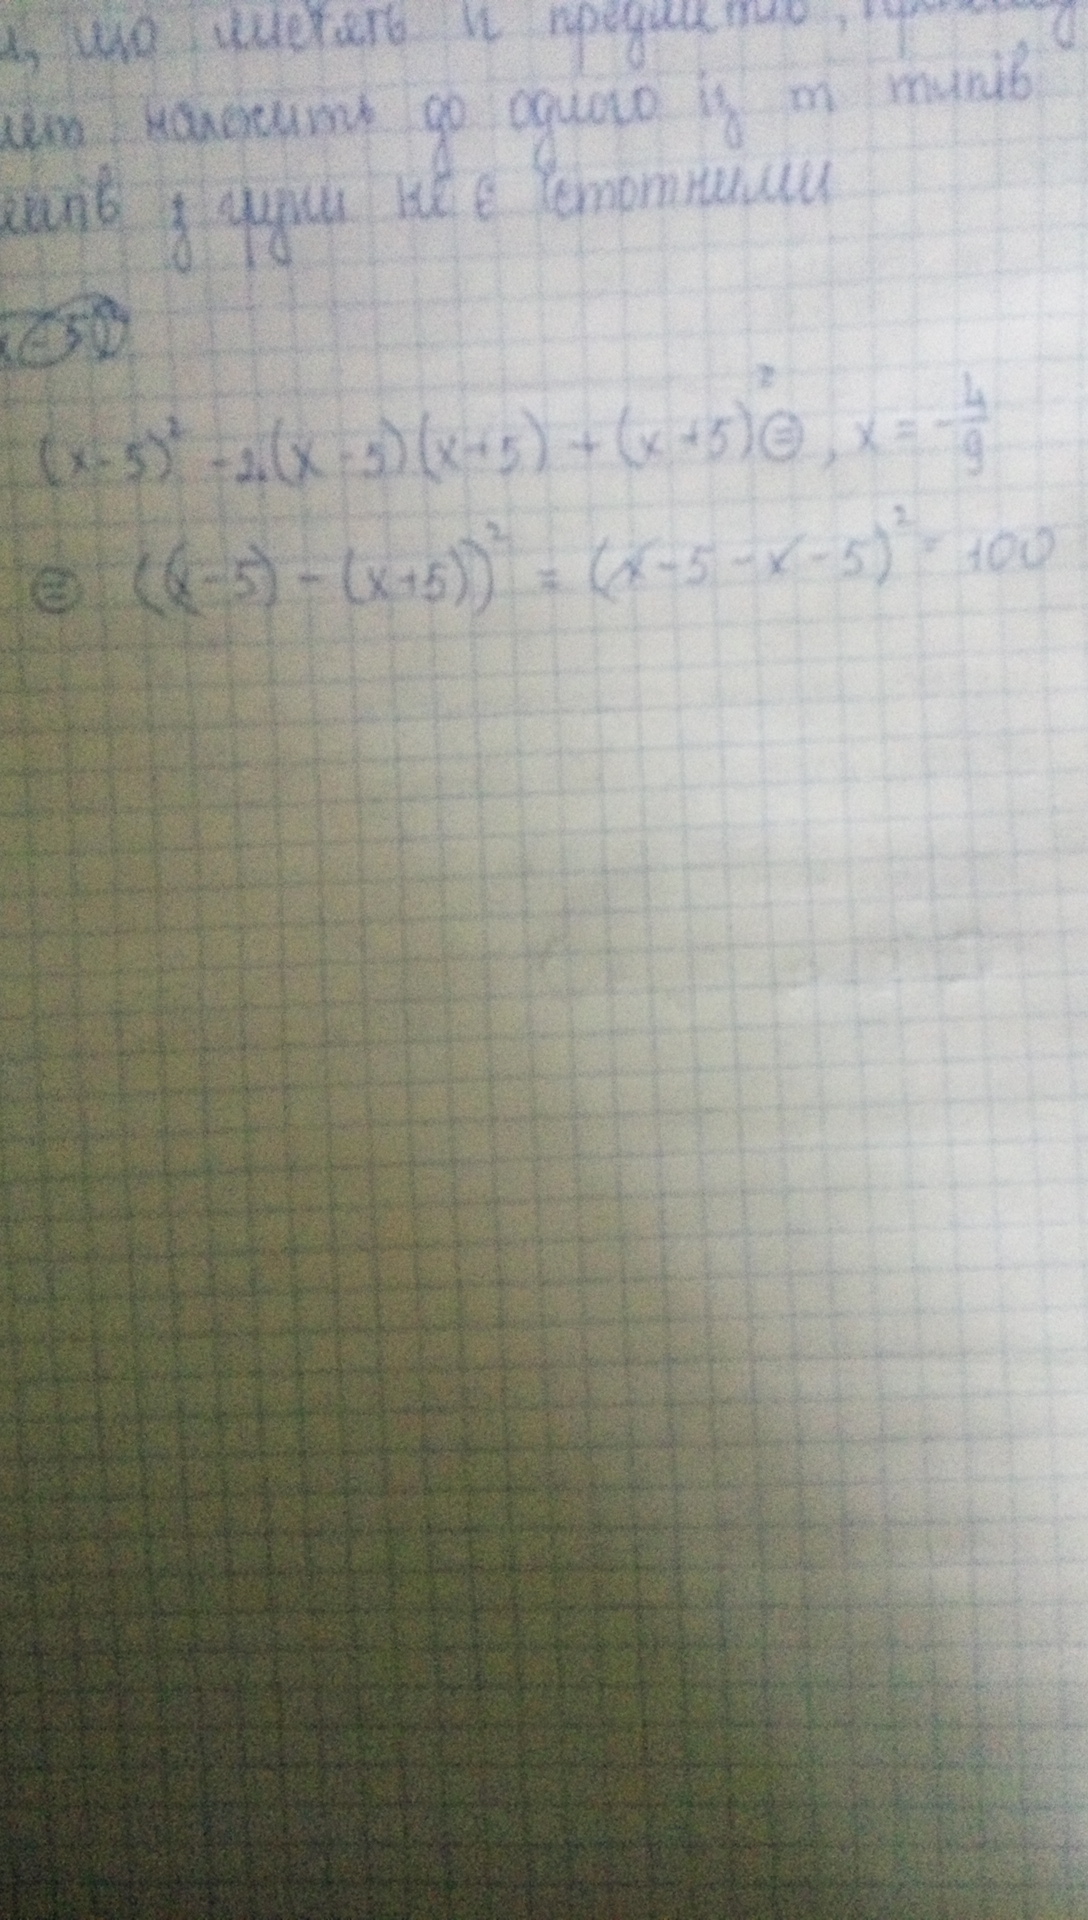 що містять n предметів,
належить до одного із m типів
з групи не є істотними
(x-5)² -2(x-5)(x+5) + (x+5)² ⊜, x = -4/9
⊜ ((x-5) - (x+5))² = (x-5-x-5)² = 100